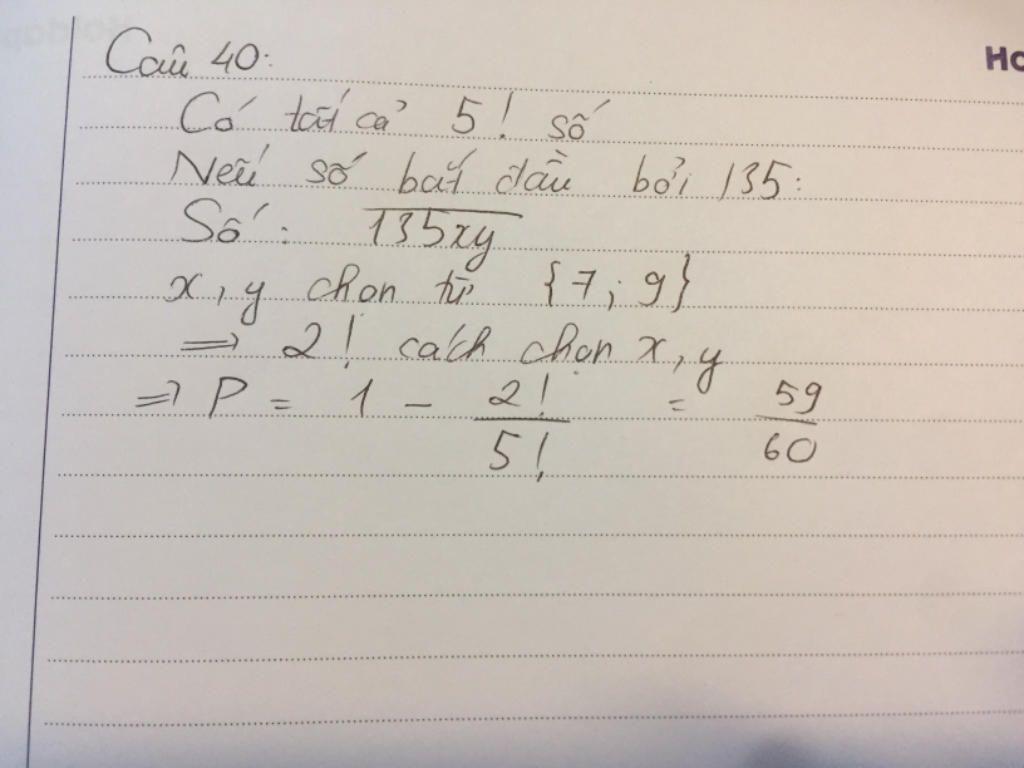 Câu 40:
Có tất cả 5! số
Nếu số bắt đầu bởi 135:
Số: 135xy
x, y chọn từ {7; 9}
=> 2! cách chọn x, y
=> P = 1 - 2!/5! = 59/60